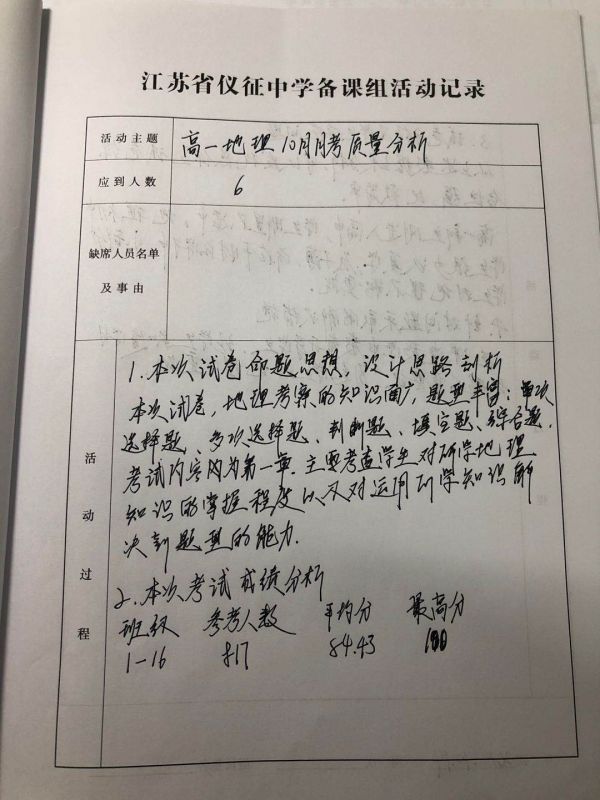 江苏省仪征中学备课组活动记录
活动主题 高一地理10月月考质量分析
应到人数 6
缺席人员名单
及事由
活动过程
1.本次试卷命题思想，设计思路剖析
本次试卷，地理考察的知识面广，题型丰富：单项
选择题、多项选择题、判断题、填空题、综合题.
考试内容内为第一章.主要考查学生对所学地理
知识的掌握程度以及对运用所学知识解
决新题型的能力.
2.本次考试成绩分析
班级 参考人数 平均分 最高分
1-16 817 84.43 100